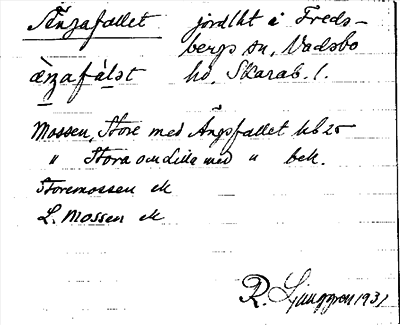 Ängafallet jordlht i Freds-
bergs sn, Vadsbo
ængafálet hd, Skarab. l.
Mossen, Store med Ängsfallet hb 25
" Stora om Lilla med " bek.
Storemossen ek
L. Mossen ek
R. Ljunggren 1931